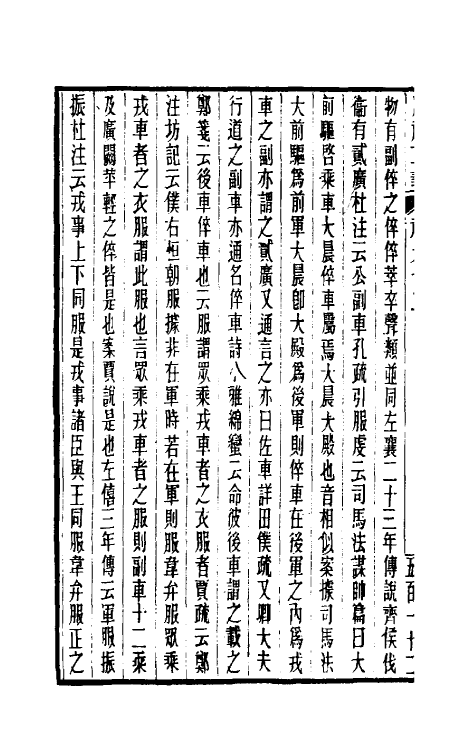 物有副倅之倅倅萃卒聲類並同左襄二十三年傳說齊侯伐
衞有貳廣杜注云公副車孔疏引服虔云司馬法謀帥篇曰大
前驅啓乘車大晨倅車屬焉大晨大殿也音相似案據司馬法
大前驅爲前軍大晨卽大殿爲後軍則倅車在後軍之內爲戎
車之副亦謂之貳廣又通言之亦曰佐車詳田僕疏又卿大夫
行道之副車亦通名倅車詩小雅綿蠻云命彼後車謂之載之
鄭箋云後車倅車也云服謂眾乘戎車者之衣服者賈疏云鄭
注坊記云僕右恒朝服據非在軍時若在軍則服韋弁服眾乘
戎車者之衣服謂此服也言眾乘戎車者之服則副車十二乘
及廣闕苹輕之倅皆是也案賈說是也左僖三年傳云軍服振
振杜注云戎事上下同服是戎事諸臣與王同服韋弁服正之